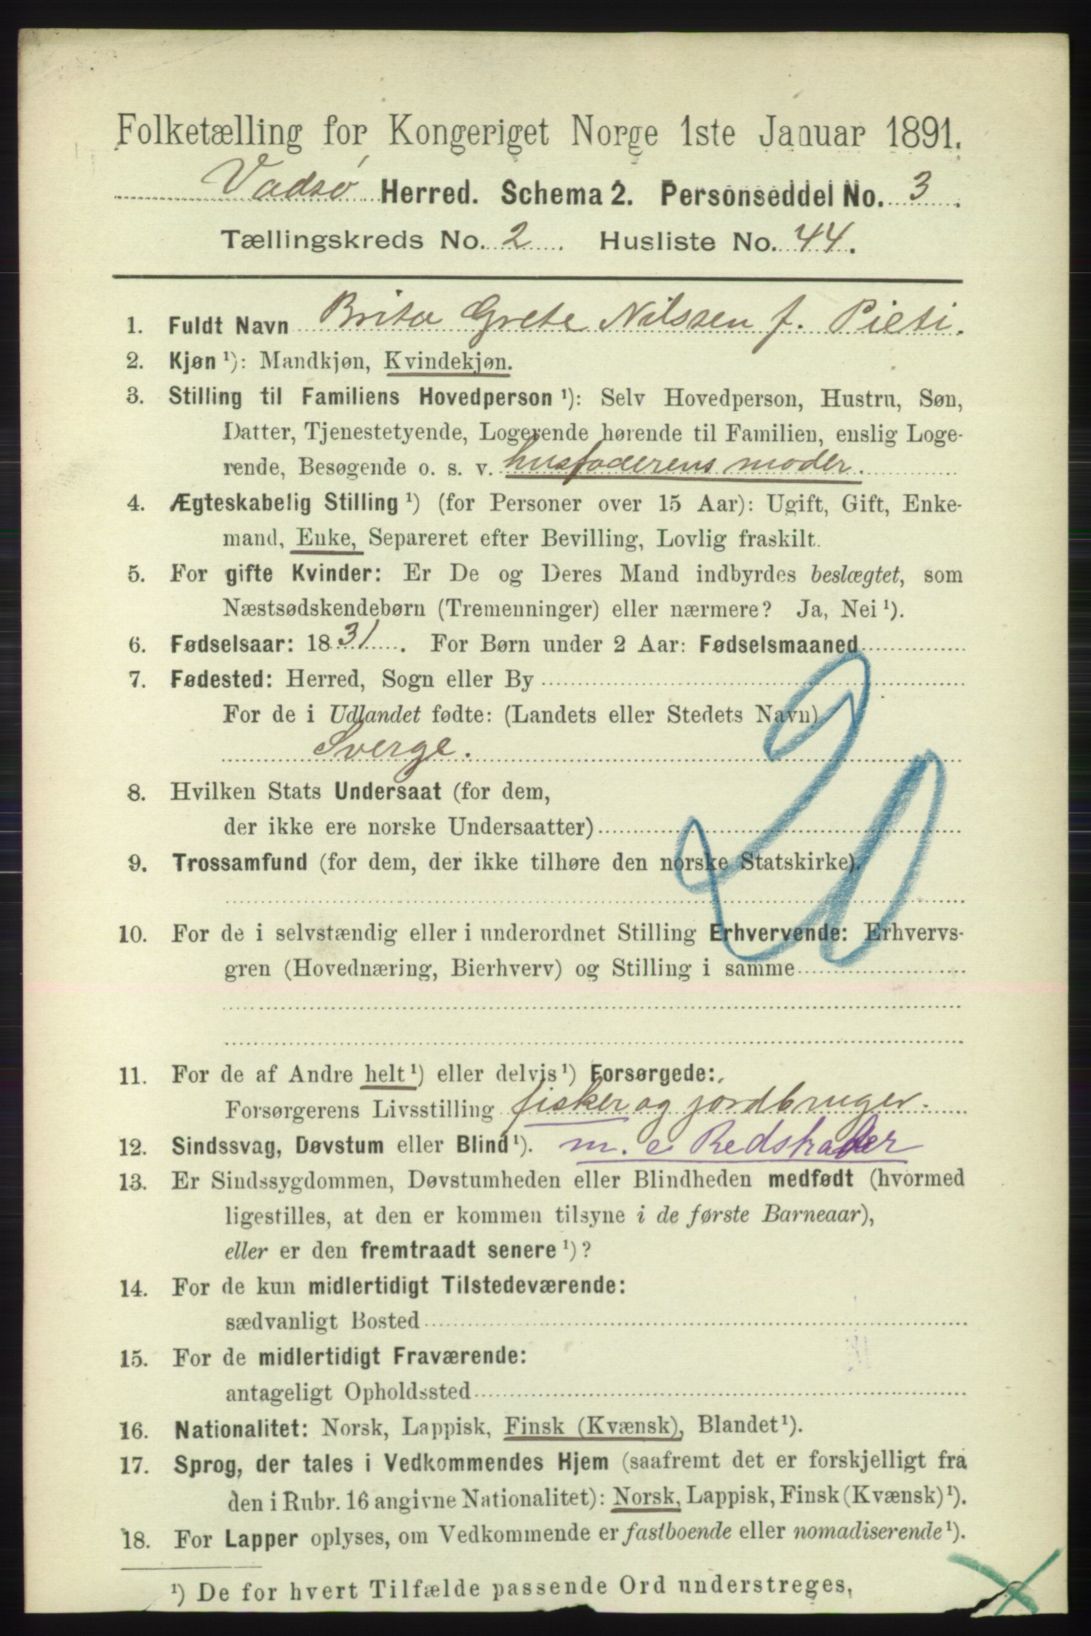 Folketælling for Kongeriget Norge 1ste Januar 1891.
Vadsø Herred. Schema 2. Personseddel No. 3.
Tællingskreds No. 2. Husliste No. 44.
1. Fuldt Navn Brita Grete Nilssen f. Pieti.
2. Kjøn ¹): Mandkjøn, Kvindekjøn.
3. Stilling til Familiens Hovedperson ¹): Selv Hovedperson, Hustru, Søn,
Datter, Tjenestetyende, Logerende hørende til Familien, enslig Loge-
rende, Besøgende o. s. v. husfaderens moder.
4. Ægteskabelig Stilling ¹) (for Personer over 15 Aar): Ugift, Gift, Enke-
mand, Enke, Separeret efter Bevilling, Lovlig fraskilt.
5. For gifte Kvinder: Er De og Deres Mand indbyrdes beslægtet, som
Næstsødskendebørn (Tremenninger) eller nærmere? Ja, Nei ¹).
6. Fødselsaar: 1831. For Børn under 2 Aar: Fødselsmaaned
7. Fødested: Herred, Sogn eller By
For de i Udlandet fødte: (Landets eller Stedets Navn)
Sverge.
20
8. Hvilken Stats Undersaat (for dem,
der ikke ere norske Undersaatter)
9. Trossamfund (for dem, der ikke tilhøre den norske Statskirke).
10. For de i selvstændig eller i underordnet Stilling Erhvervende: Erhvervs-
gren (Hovednæring, Bierhverv) og Stilling i samme
11. For de af Andre helt ¹) eller delvis ¹) Forsørgede:
Forsørgerens Livsstilling fisker og jordbruger.
12. Sindssvag, Døvstum eller Blind ¹). m. e Redskaber
13. Er Sindssygdommen, Døvstumheden eller Blindheden medfødt (hvormed
ligestilles, at den er kommen tilsyne i de første Barneaar),
eller er den fremtraadt senere ¹)?
14. For de kun midlertidigt Tilstedeværende:
sædvanligt Bosted
15. For de midlertidigt Fraværende:
antageligt Opholdssted
16. Nationalitet: Norsk, Lappisk, Finsk (Kvænsk), Blandet ¹).
17. Sprog, der tales i Vedkommendes Hjem (saafremt det er forskjelligt fra
den i Rubr. 16 angivne Nationalitet): Norsk, Lappisk, Finsk (Kvænsk) ¹).
18. For Lapper oplyses, om Vedkommende er fastboende eller nomadiserende ¹).
¹) De for hvert Tilfælde passende Ord understreges,